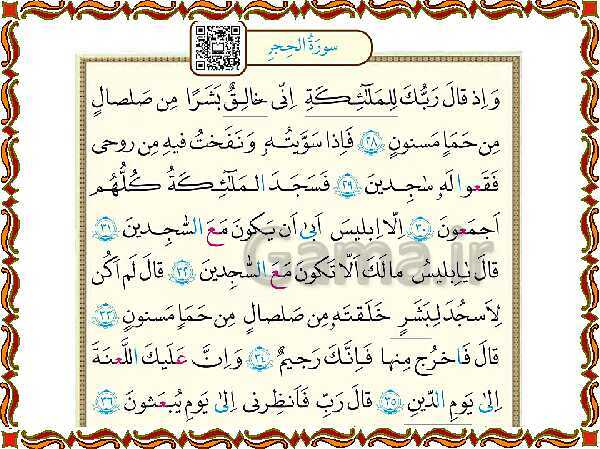 سورَةُ الحِجرِ
وَ اِذ قالَ رَبُّكَ لِلمَلٰٓئِكَةِ اِنّی خالِقٌ بَشَرًا مِن صَلصالٍ
مِن حَمَاٍ مَسنونٍ ﴿٢٨﴾ فَاِذا سَوَّیتُهٗ وَ نَفَختُ فیهِ مِن روحی
فَقَعوا لَهٗ سٰجِدینَ ﴿٢٩﴾ فَسَجَدَ المَلٰٓئِکَةُ کُلُّهُم
اَجمَعونَ ﴿٣٠﴾ اِلّا اِبلیسَ اَبیٰ اَن یَکونَ مَعَ السّٰجِدینَ ﴿٣١﴾
قالَ یٰاِبلیسُ ما لَكَ اَلّا تَکونَ مَعَ السّٰجِدینَ ﴿٣٢﴾ قالَ لَم اَکُن
لِاَسجُدَ لِبَشَرٍ خَلَقتَهٗ مِن صَلصالٍ مِن حَمَاٍ مَسنونٍ ﴿٣٣﴾
قالَ فَاخرُج مِنها فَاِنَّكَ رَجیمٌ ﴿٣٤﴾ وَ اِنَّ عَلَیكَ اللَّعنَةَ
اِلیٰ یَومِ الدّینِ ﴿٣٥﴾ قالَ رَبِّ فَاَنظِرنی اِلیٰ یَومِ یُبعَثونَ ﴿٣٦﴾
Gama.ir